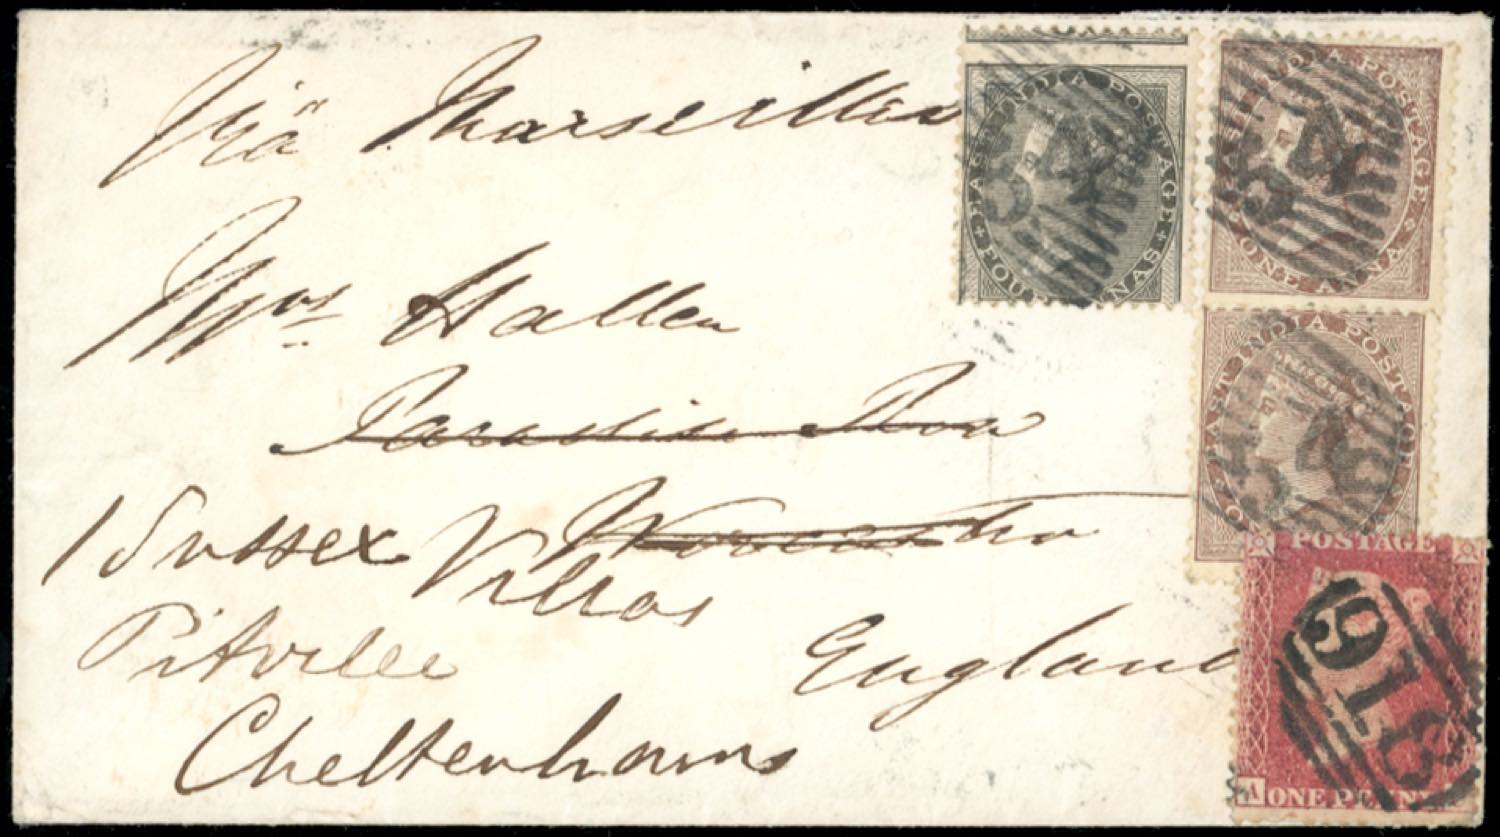 Viä Marseilles
Mrs Hallen
Paradise Row
Worcester
1 Sussex Villas
Pitville
England
Cheltenham
EAST INDIA POSTAGE
FOUR ANNAS
EAST INDIA POSTAGE
ONE ANNA
EAST INDIA POSTAGE
POSTAGE
A ONE PENNY
918